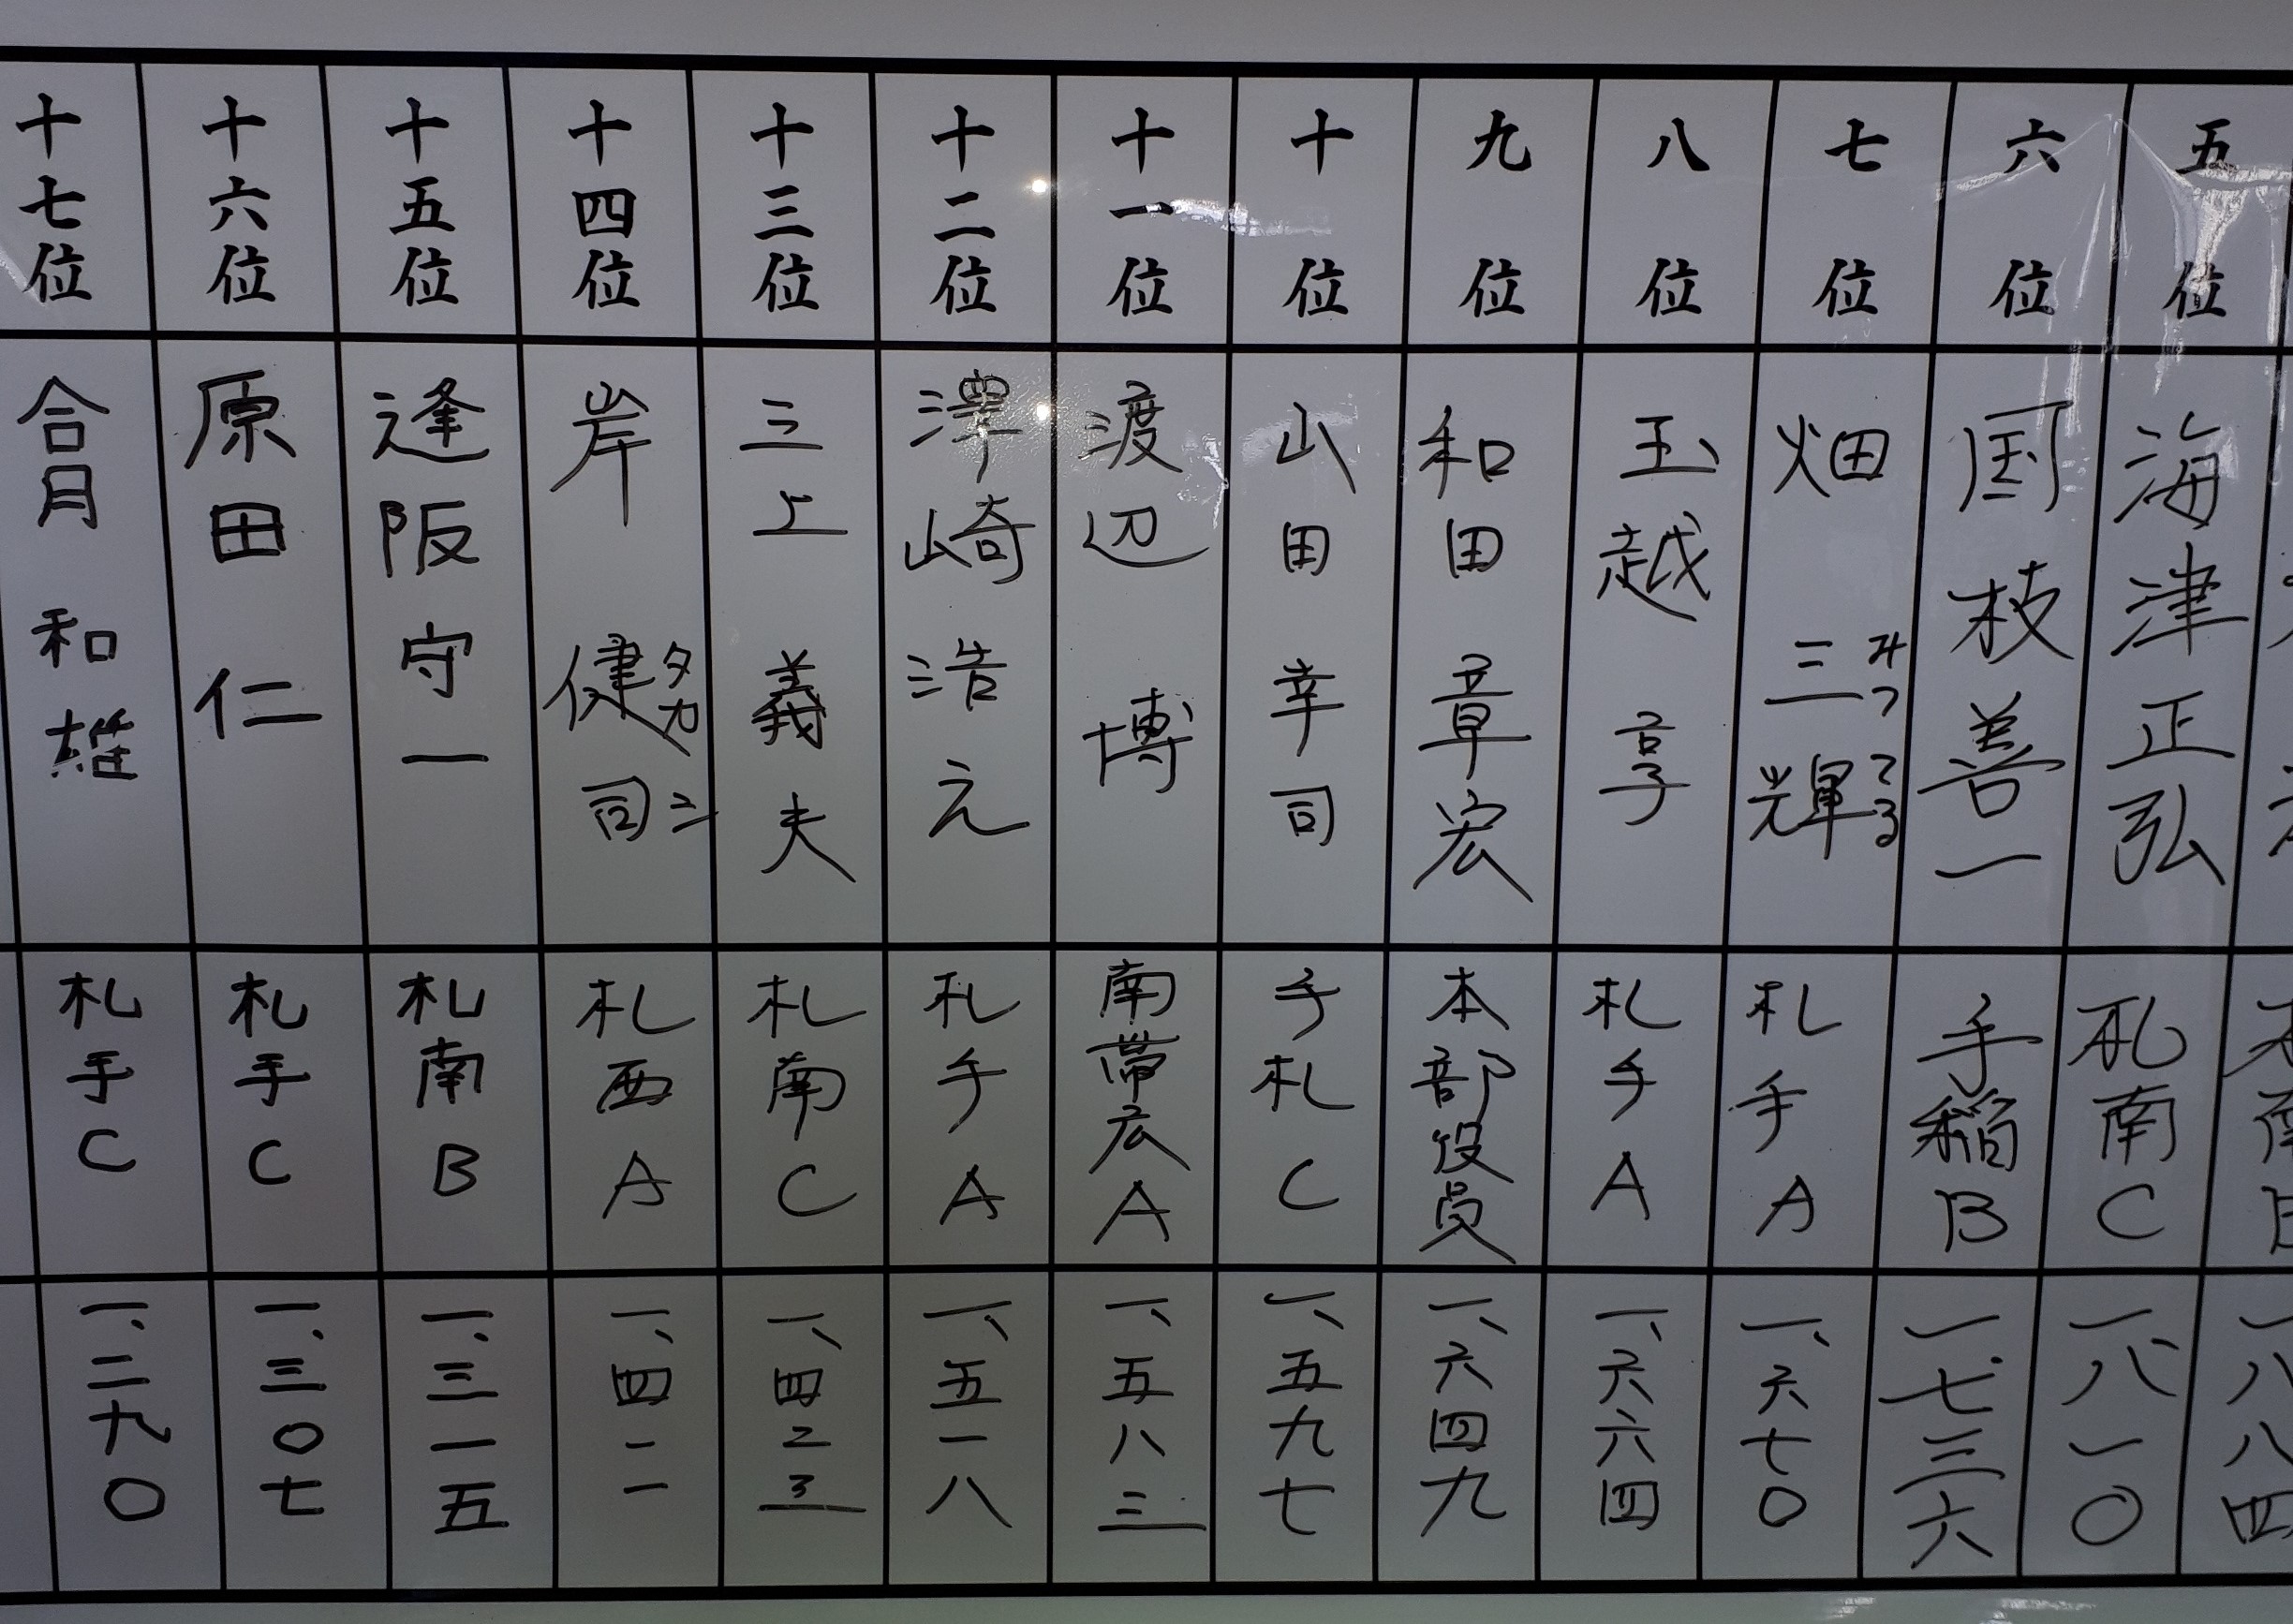 五位 海津正弘 札南C 一、八一〇
六位 国枝善一 手稲B 一、七三六
七位 畑 三輝 ミツ てる 札手A 一、六七〇
八位 玉越 享 札手A 一、六六四
九位 和田章宏 本部役員 一、六四九
十位 山田幸司 手札C 一、五九七
十一位 渡辺 博 南帯広A 一、五八三
十二位 澤崎浩之 札手A 一、五一八
十三位 三上義夫 札南C 一、四二三
十四位 岸 健司 タカシ 札西A 一、四二一
十五位 逢阪守一 札南B 一、三一五
十六位 原田 仁 札手C 一、三〇七
十七位 合月 和雄 札手C 一、二九〇